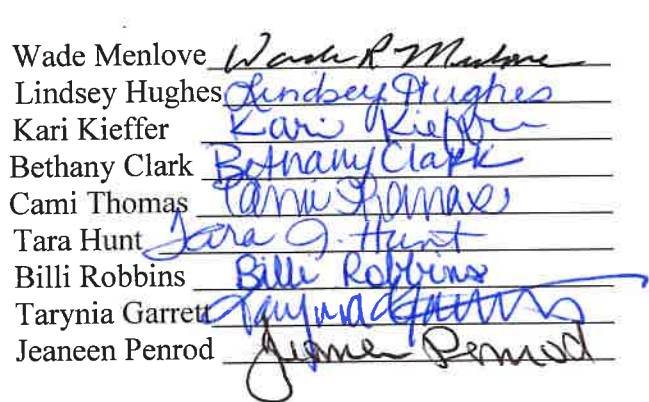 Wade Menlove Wade R Menlove
Lindsey Hughes Lindsey Hughes
Kari Kieffer Kari Kieffer
Bethany Clark Bethany Clark
Cami Thomas Cami Thomas
Tara Hunt Tara J. Hunt
Billi Robbins Billi Robbins
Tarynia Garrett Tarynia Garrett
Jeaneen Penrod Jeaneen Penrod